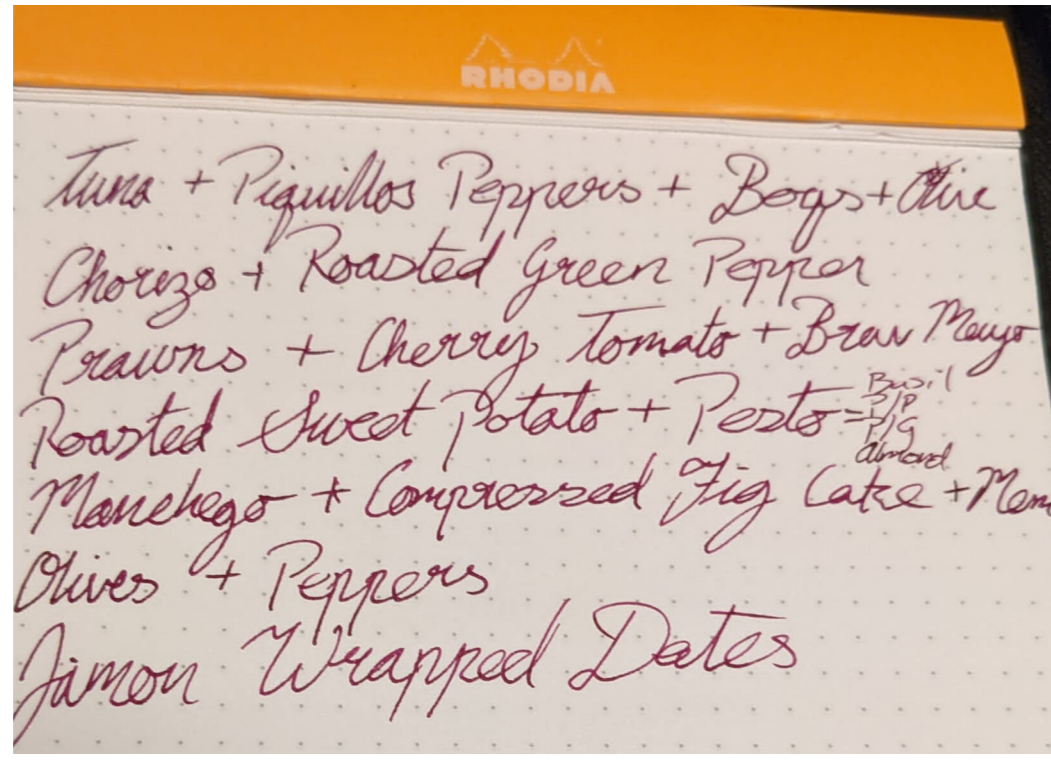 RHODIA
Tuna + Piquillos Peppers + Boqs + Olive
Chorizo + Roasted Green Pepper
Prawns + Cherry Tomato + Brav Mayo
Roasted Sweet Potato + Pesto - Basil
S/P
P/G
Almond
Manchego + Compressed Fig Cake +
Olives + Peppers
Jamon Wrapped Dates